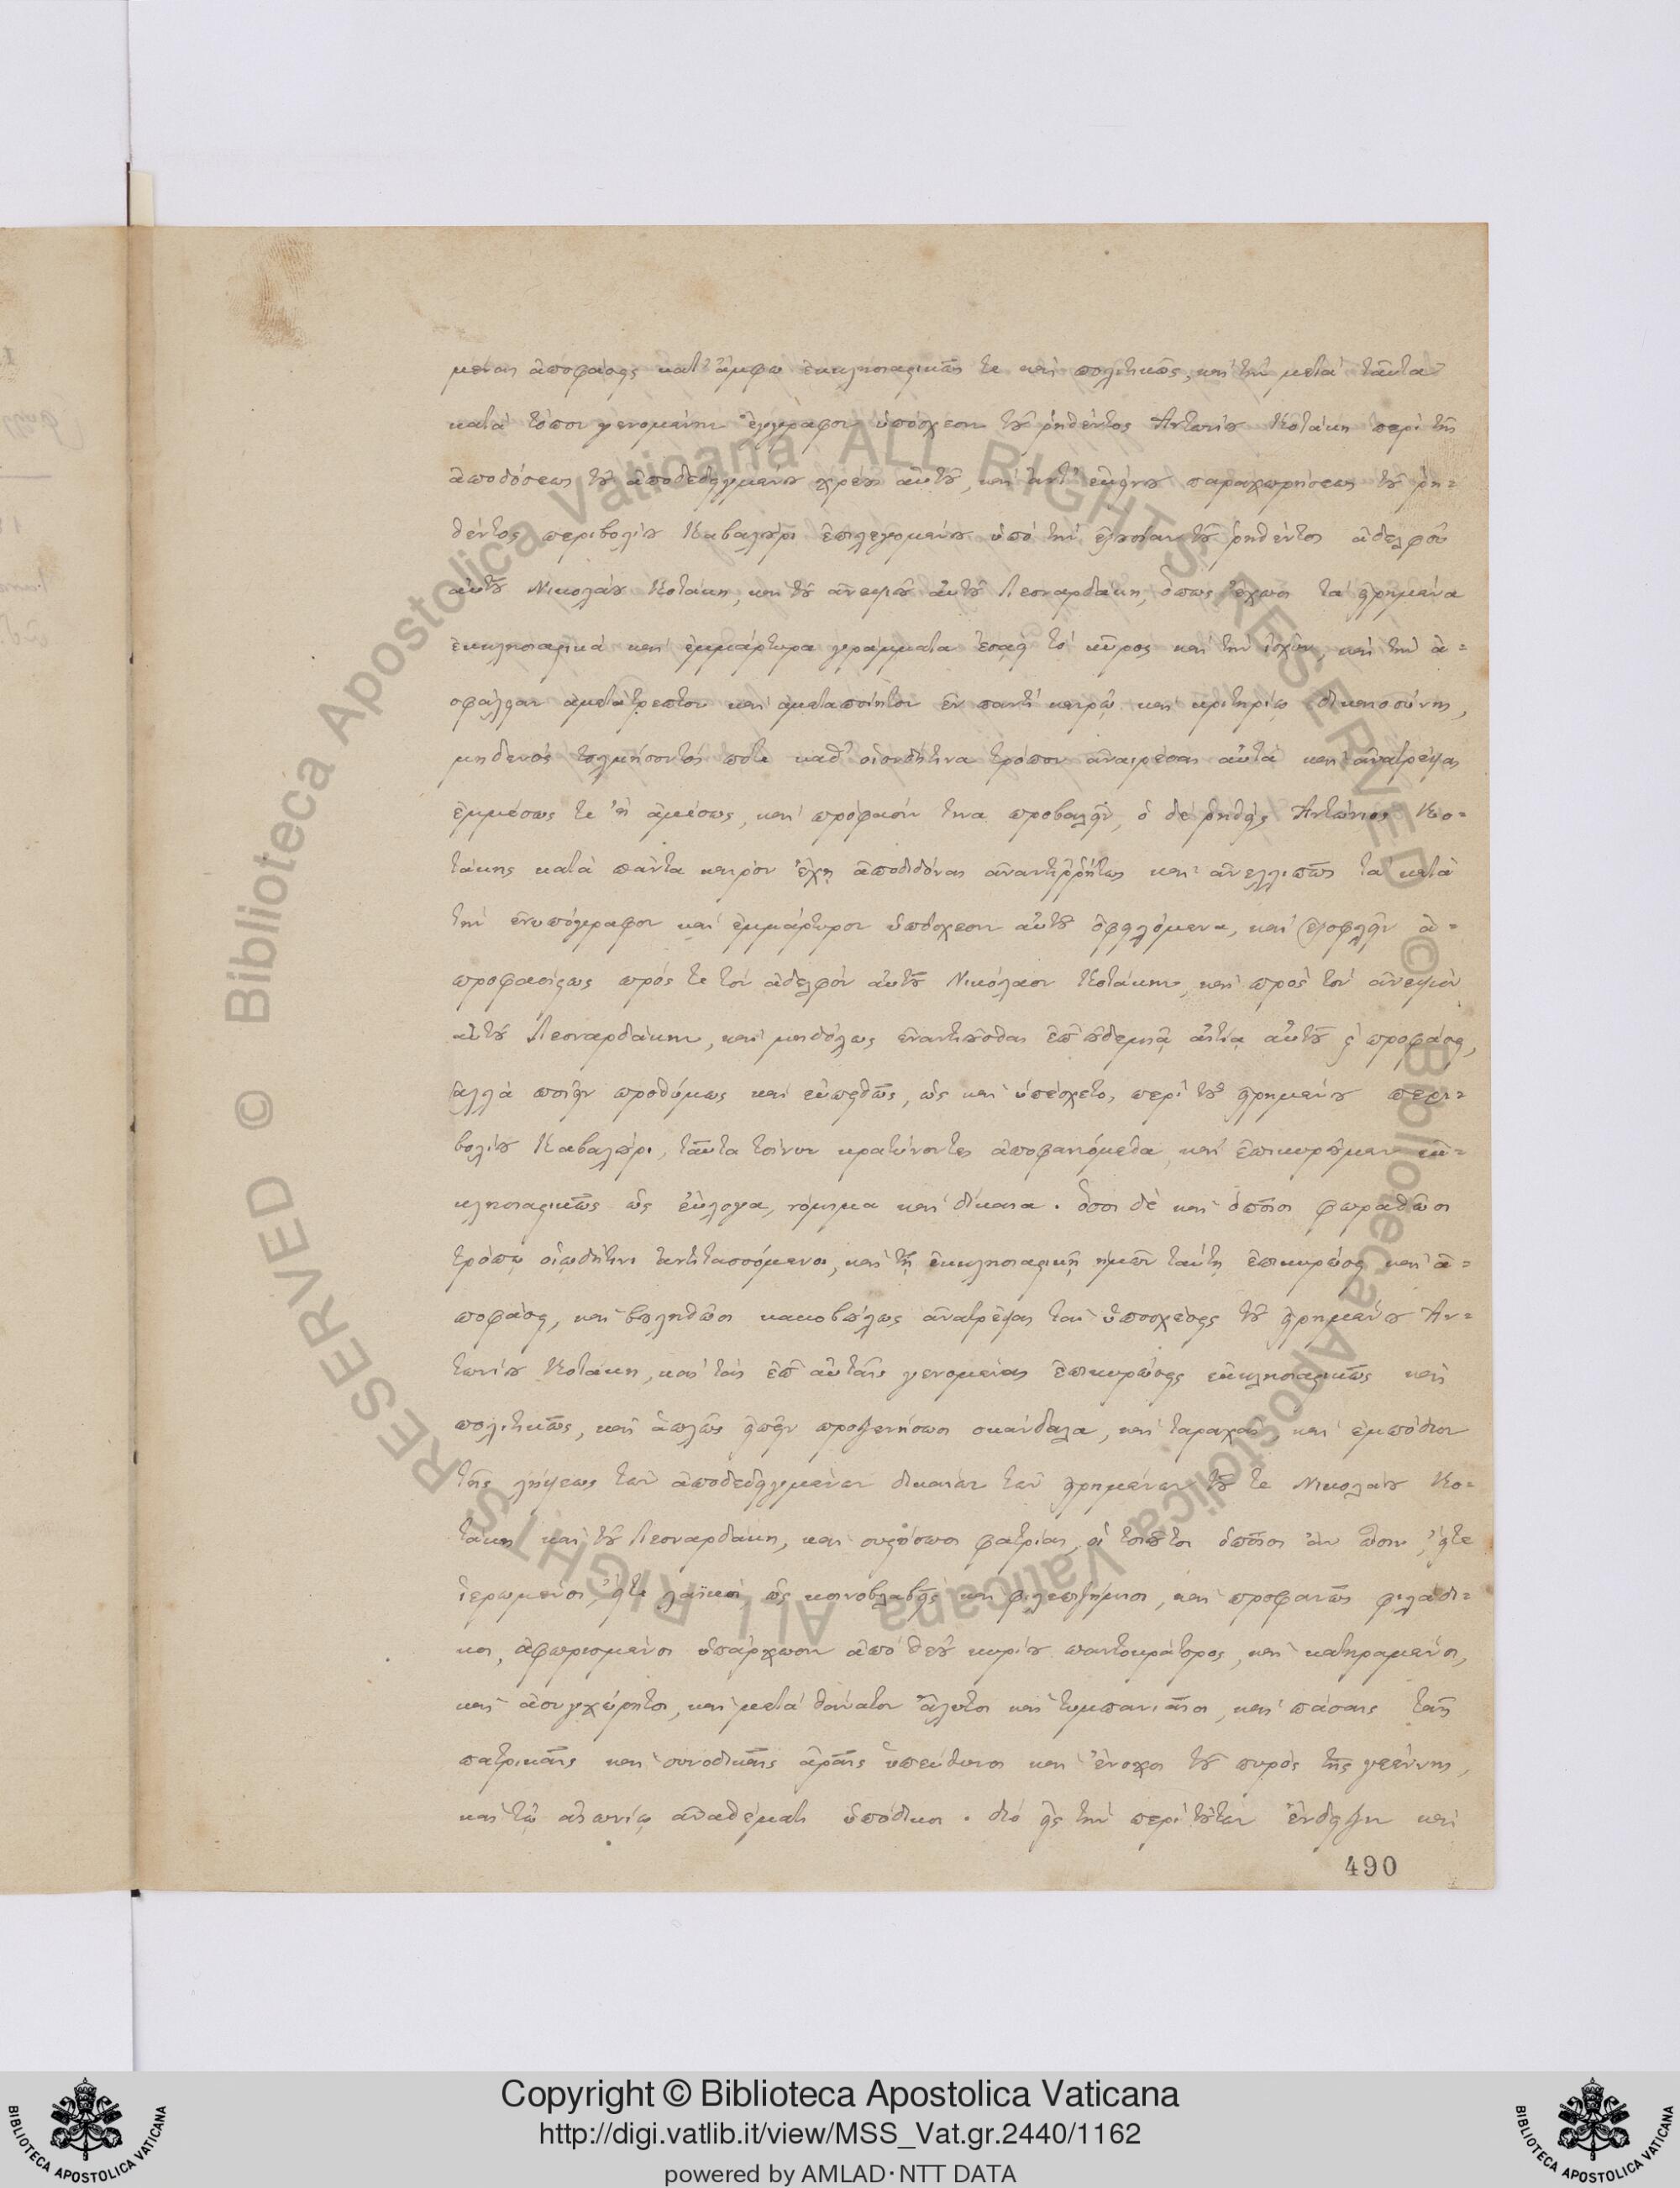 μένας ἀποφάσεις κατ' ἄμφω ἐκκλησιαστικῶς τε καὶ πολιτικῶς, καὶ τὴν μετὰ ταῦτα
κατὰ τόπον γενομένην ἔγγραφον ὑπόσχεσιν τοῦ ῥηθέντος Ἀντωνίου Κοτάκη περὶ τῆς
ἀποδόσεως τοῦ ἀποδεδειγμένου χρέους αὐτοῦ, καὶ ἀντ' ἐκείνου παραχωρήσεως τοῦ ῥη-
θέντος περιβολίου Καβαλούρι ἐπιλεγομένου ὑπὸ τὴν ἐξουσίαν τοῦ ῥηθέντος ἀδελφοῦ
αὐτοῦ Νικολάου Κοτάκη, καὶ τοῦ ἀνεψιοῦ αὐτοῦ Λεοναρδάκη, ὅπως ἔχωσι τὰ εἰρημένα
ἐκκλησιαστικὰ καὶ ἐμμάρτυρα γράμματα ἐσαεὶ τὸ κῦρος καὶ τὴν ἰσχὺν, καὶ τὴν ἀ-
σφάλειαν ἀμετάτρεπτον καὶ ἀμεταποίητον ἐν παντὶ καιρῷ καὶ κριτηρίῳ δικαιοσύνης,
μηδενὸς τολμήσοντός ποτε καθ' οἱονδήτινα τρόπον ἀναιρέσαι αὐτὰ καὶ ἀνατρέψαι
ἐμμέσως τε ἢ ἀμέσως, καὶ πρόφασίν τινα προβαλεῖν, ὁ δὲ ῥηθεὶς Ἀντώνιος Κο-
τάκης κατὰ πάντα καιρὸν ἔχῃ ἀποδιδόναι ἀναντιῤῥήτως καὶ ἀνελλιπῶς τὰ κατὰ
τὴν ἐνυπόγραφον καὶ ἐμμάρτυρον ὑπόσχεσιν αὐτοῦ ὀφειλόμενα, καὶ ἐξοφλεῖν ἀ-
προφασίστως πρός τε τὸν ἀδελφὸν αὐτοῦ Νικόλαον Κοτάκην, καὶ πρὸς τὸν ἀνεψιὸν
αὐτοῦ Λεοναρδάκην, καὶ μηδόλως ἐναντιοῦσθαι ἐπ' οὐδεμιᾷ αἰτίᾳ αὐτοῦ ἢ προφάσει,
ἀλλὰ ποιεῖν προθύμως καὶ εὐπειθῶς, ὡς καὶ ὑπέσχετο, περὶ τοῦ εἰρημένου περι-
βολίου Καβαλούρι, ταῦτα τοίνυν κρατύνοντες ἀποφαινόμεθα, καὶ ἐπικυροῦμεν ἐκ-
κλησιαστικῶς ὡς εὔλογα, νόμιμα καὶ δίκαια. ὅσοι δὲ καὶ ὁποῖοι φωραθῶσι
τρόπῳ οἱῳδήτινι ἀντιτασσόμενοι, καὶ τῇ ἐκκλησιαστικῇ ἡμῶν ταύτῃ ἐπικυρώσει καὶ ἀ-
ποφάσει, καὶ βουληθῶσι κακοβούλως ἀνατρέψαι τὰς ὑποσχέσεις τοῦ εἰρημένου Ἀν-
τωνίου Κοτάκη, καὶ τὰς ἐπ' αὐταῖς γενομένας ἐπικυρώσεις ἐκκλησιαστικῶς καὶ
πολιτικῶς, καὶ ἁπλῶς εἰπεῖν προξενήσωσι σκάνδαλα, καὶ ταραχὰς, καὶ ἐμπόδιον
τῆς λήψεως τῶν ἀποδεδειγμένων δικαίων τῶν εἰρημένων τοῦ τε Νικολάου Κο-
τάκη καὶ τοῦ Λεοναρδάκη, καὶ συστήσωσι φατρίας, οἱ τοιοῦτοι ὁποῖοι ἂν ὦσιν, εἴτε
ἱερωμένοι, εἴτε λαϊκοὶ, ὡς κοινοβλαβεῖς καὶ φιλεπιζήμιοι, καὶ προφανῶς φιλάδι-
κοι, ἀφωρισμένοι ὑπάρχωσιν ἀπὸ θεοῦ κυρίου παντοκράτορος, καὶ κατηραμένοι,
καὶ ἀσυγχώρητοι, καὶ μετὰ θάνατον ἄλυτοι καὶ τυμπανιαῖοι, καὶ πάσαις ταῖς
πατρικαῖς καὶ συνοδικαῖς ἀραῖς ὑπεύθυνοι καὶ ἔνοχοι τοῦ πυρὸς τῆς γεέννης,
καὶ τῷ αἰωνίῳ ἀναθέματι ὑπόδικοι. διὸ εἰς τὴν περὶ τούτων ἔνδειξιν καὶ
490
© Biblioteca Apostolica Vaticana ALL RIGHTS RESERVED © Biblioteca Apostolica Vaticana ALL RIGHTS RESERVED
Copyright © Biblioteca Apostolica Vaticana
http://digi.vatlib.it/view/MSS_Vat.gr.2440/1162
powered by AMLAD·NTT DATA
BIBLIOTECA APOSTOLICA VATICANA
BIBLIOTECA APOSTOLICA VATICANA